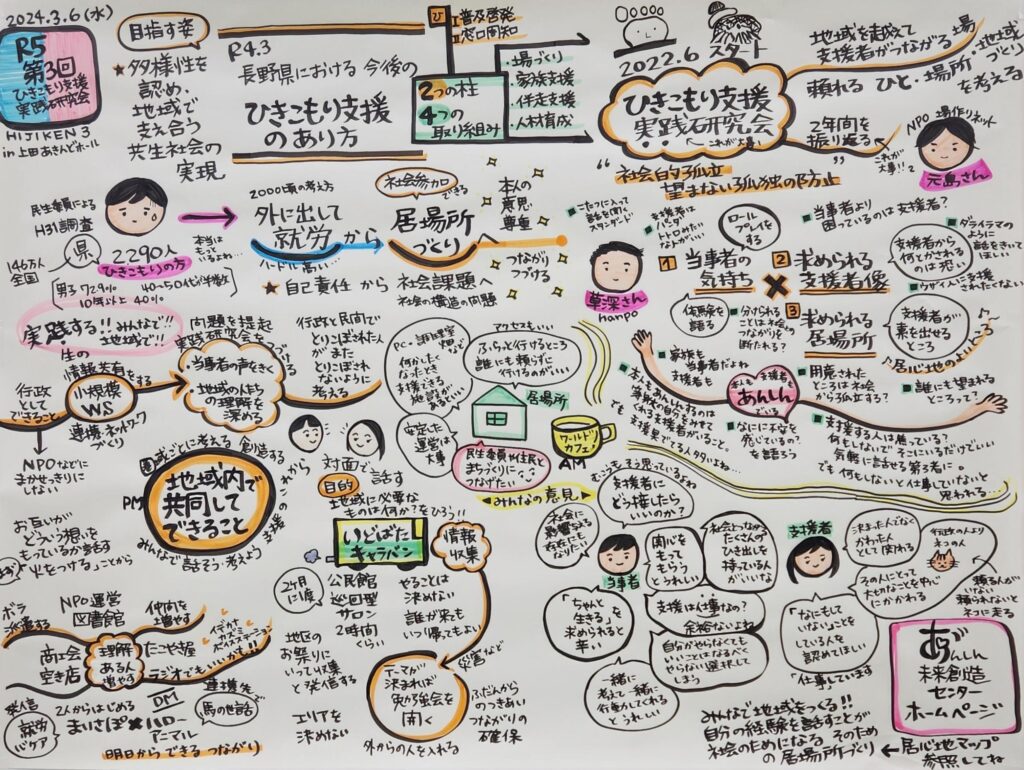 2024.3.6(水)
R5
第3回
ひきこもり支援
実践研究会
HIJIKEN 3
in 上田あきんどホール
目指す姿
★多様性を
認め、
地域で
支え合う
共生社会の
実現
R4.3
長野県における 今後の
ひきこもり支援
のあり方
Ⅰ普及啓発
Ⅱ窓口周知
2つの柱
4つの
取り組み
・場づくり
・家族支援
・伴走支援
・人材育成
スタート
2022.6
ひきこもり支援
実践研究会
これが大事
地域を越えて
支援者がつながる場
頼れるひと・場所・地域
づくり
を考える
2年間を
振り返る
NPO 場作りネット
元島さん
これが
大事!!
社会的孤立
望まない孤独の防止
民生委員による
H31調査
県
146万人
全国
2290人
ひきこもりの方
本当は
もっと
いるよね…
男子 72.9%
40〜50代が半数
10年以上 40%
2000頃の考え方
外に出して
就労 から
ハードル高い…
社会参加
できる
居場所
づくり
本人の
意思
尊重
つながり
つづける
★自己責任 から 社会課題へ
社会の構造の問題
草深さん
hanpo
こたつに入って
話を聞く
スタンダード
支援者は
バンダナ
トロめたい
なんがいい
ロール
プレイを
する
1 当事者の
気持ち
2 求められる
支援者像
3 求められる
居場所
当事者より
困っているのは支援者?
支援者から
何とかされる
のは恐い
ダライラマの
ように
話をきいて
ほしい
ウザイ人に支援
されたくない
体験を
語る
分けられる
ことは社会の
つながりを
断たれる?
支援者が
素を出せる
ところ
居心地のよいところ
家族も
当事者だよね
支援者も
本人も支援者も
あんしん
でいる
用意された
ところは社会
から孤立する?
誰にも望まれる
ところって?
なにに不安を
感じているの?
を語ろう
支援する人は焦っている?
何もしないで そこにいるだけでいい
気軽に話せる第3者に。
でも 何もしないと仕事していないと
思われる…
実践する!!みんなで!!
地域で!!
生の
情報共有をする
小規模
WS
連携・ネットワーク
づくり
行政と
して
できること
NPOなどに
まかせっきりに
しない
問題を提起
実践研究会をつづける
・当事者の声をきく
・地域の人たち
の理解を
深める
行政と民間で
とりこぼされた人
が また
とりこぼされ
ないように
考える
PC・調理・農業
畑など
何かしたく
なったとき
支援できる
施設が
あるといい
アクセスもいい
ふらっと行けるところ
誰にも頼らずに
行けるのがいい
居場所
安定した
運営は
大事
民生委員や住民と
まちづくりに
つなげたい
ワールド
カフェ
AM
みんなの意見
圏域ごとに考える
PM
地域内で
共同して
できること
創造する
これからの
支援
みんなで話そう・考えよう
対面で
話す
目的
地域に必要な
ものは何か?をひろう!!
いどばた
キャラバン
情報
収集
2ヶ月
に1度
公民館
巡回型
サロン
2時間
くらい
やることは
決めない
誰が来ても
いつ帰ってもよい
地区の
お祭りに
いって収集
と発信する
エリアを
決めない
テーマが
決まれば
勉強会を
開く
外からの人を入れる
災害など
ふだんから
のつきあい
つながりの
確保
お互いが
どういう想いを
もっているか話す
火をつける ことから
ボラ
派遣する
NPO運営
図書館
仲間を
増やす
商工会
空き店
理解
ある人
増やす
たこや焼屋
ラジオでもいいかも!!
発信
就労
ケア
2人からはじめる
まいさぽ × ハロー
アニマル
DM
連携先で
馬の世話
明日からできる つながり
そう思っているよね
支援者に
どう接したら
いいのか?
社会に
影響与える
存在にも
なりたい
当事者
関心を
もって
もらうと
うれしい
社会とつながる
たくさんの
ひき出しを
持っている人
がいいな
「ちゃんと
生きる」を
求められると
辛い
支援は仕事なの?
余裕ないよね
自分がやらなくても
いいことはなるべく
やらない選択して
しまう
一緒に
考えて一緒に
行動してくれる
とうれしい
支援者
決まった人でなく
かわった人
として関わる
その人にとって
大切なことを中心
にかかわる
「なにもして
いないことを
している人を
認めてほしい
「仕事しています」
行政の人より
ネコの人
頼る人が
いない
頼られないと
ネコに走る
あんしん
未来創造
センター
ホームページ
居心地マップ
参照してね
みんなで地域をつくる!!
自分の経験を話すことが
社会のためになる そのため
の居場所づくり